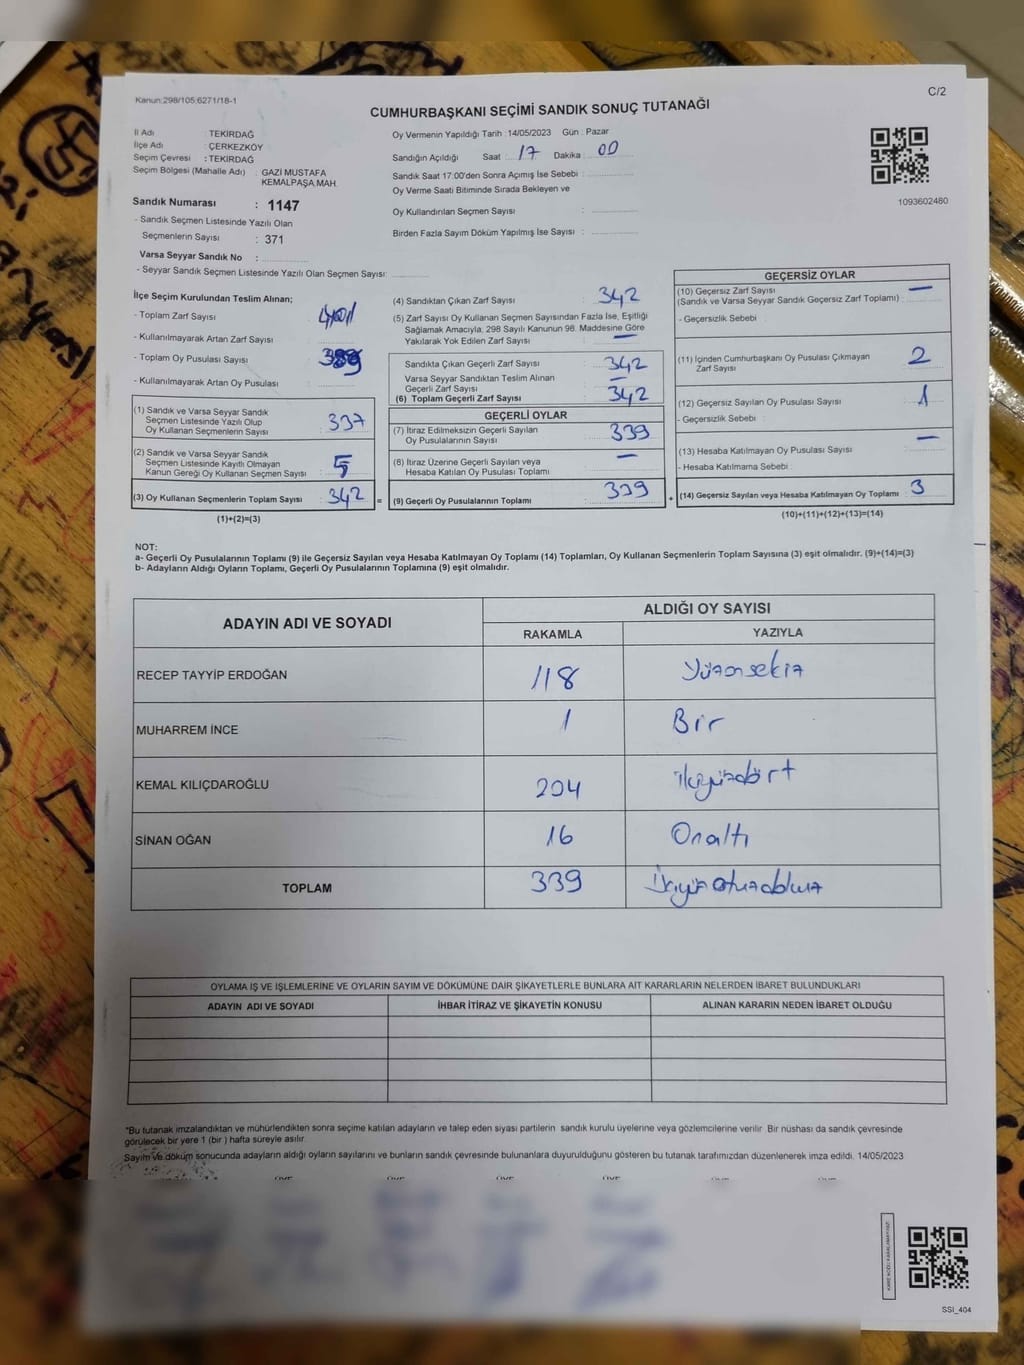 Kanun:298/105:6271/18-1
C/2
CUMHURBAŞKANI SEÇİMİ SANDIK SONUÇ TUTANAĞI
İl Adı : TEKİRDAĞ
İlçe Adı : ÇERKEZKÖY
Seçim Çevresi : TEKİRDAĞ
Seçim Bölgesi (Mahalle Adı) : GAZİ MUSTAFA
KEMALPAŞA MAH.
Sandık Numarası : 1147
- Sandık Seçmen Listesinde Yazılı Olan
Seçmenlerin Sayısı : 371
Varsa Seyyar Sandık No :
- Seyyar Sandık Seçmen Listesinde Yazılı Olan Seçmen Sayısı:
Oy Vermenin Yapıldığı Tarih : 14/05/2023 Gün : Pazar
Sandığın Açıldığı Saat : 17 Dakika : 00
Sandık Saat 17:00'den Sonra Açımış İse Sebebi :
Oy Verme Saati Bitiminde Sırada Bekleyen ve
Oy Kullandırılan Seçmen Sayısı :
Birden Fazla Sayım Döküm Yapılmış İse Sayısı :
1093602480
İlçe Seçim Kurulundan Teslim Alınan;
- Toplam Zarf Sayısı :
- Kullanılmayarak Artan Zarf Sayısı :
- Toplam Oy Pusulası Sayısı :
- Kullanılmayarak Artan Oy Pusulası :
(1) Sandık ve Varsa Seyyar Sandık
Seçmen Listesinde Yazılı Olup
Oy Kullanan Seçmenlerin Sayısı : 337
(2) Sandık ve Varsa Seyyar Sandık
Seçmen Listesinde Kayıtlı Olmayan
Kanun Gereği Oy Kullanan Seçmen Sayısı : 5
(3) Oy Kullanan Seçmenlerin Toplam Sayısı : 342 =
(1)+(2)=(3)
(4) Sandıktan Çıkan Zarf Sayısı : 342
(5) Zarf Sayısı Oy Kullanan Seçmen Sayısından Fazla İse, Eşitliği
Sağlamak Amacıyla; 298 Sayılı Kanunun 98. Maddesine Göre
Yakılarak Yok Edilen Zarf Sayısı : —
Sandıkta Çıkan Geçerli Zarf Sayısı : 342
Varsa Seyyar Sandıktan Teslim Alınan
Geçerli Zarf Sayısı : —
(6) Toplam Geçerli Zarf Sayısı : 342
GEÇERLİ OYLAR
(7) İtiraz Edilmeksizin Geçerli Sayılan
Oy Pusulalarının Sayısı : 339
(8) İtiraz Üzerine Geçerli Sayılan veya
Hesaba Katılan Oy Pusulası Toplamı : —
(9) Geçerli Oy Pusulalarının Toplamı : 339 +
GEÇERSİZ OYLAR
(10) Geçersiz Zarf Sayısı —
(Sandık ve Varsa Seyyar Sandık Geçersiz Zarf Toplamı) :
- Geçersizlik Sebebi :
(11) İçinden Cumhurbaşkanı Oy Pusulası Çıkmayan
Zarf Sayısı : 2
(12) Geçersiz Sayılan Oy Pusulası Sayısı : 1
- Geçersizlik Sebebi :
(13) Hesaba Katılmayan Oy Pusulası Sayısı : —
- Hesaba Katılmama Sebebi :
(14) Geçersiz Sayılan veya Hesaba Katılmayan Oy Toplamı : 3
(10)+(11)+(12)+(13)=(14)
NOT:
a- Geçerli Oy Pusulalarının Toplamı (9) ile Geçersiz Sayılan veya Hesaba Katılmayan Oy Toplamı (14) Toplamları, Oy Kullanan Seçmenlerin Toplam Sayısına (3) eşit olmalıdır. (9)+(14)=(3)
b- Adayların Aldığı Oyların Toplamı, Geçerli Oy Pusulalarının Toplamına (9) eşit olmalıdır.
ADAYIN ADI VE SOYADI ALDIĞI OY SAYISI
RAKAMLA YAZIYLA
RECEP TAYYİP ERDOĞAN 118 Yüzonsekiz
MUHARREM İNCE 1 Bir
KEMAL KILIÇDAROĞLU 204 ikiyüzdört
SİNAN OĞAN 16 Onaltı
TOPLAM 339
OYLAMA İŞ VE İŞLEMLERİNE VE OYLARIN SAYIM VE DÖKÜMÜNE DAİR ŞİKAYETLERLE BUNLARA AİT KARARLARIN NELERDEN İBARET BULUNDUKLARI
ADAYIN ADI VE SOYADI İHBAR İTİRAZ VE ŞİKAYETİN KONUSU ALINAN KARARIN NEDEN İBARET OLDUĞU
*Bu tutanak imzalandıktan ve mühürlendikten sonra seçime katılan adayların ve talep eden siyasi partilerin sandık kurulu üyelerine veya gözlemcilerine verilir. Bir nüshası da sandık çevresinde
görülecek bir yere 1 (bir ) hafta süreyle asılır.
Sayım ve döküm sonucunda adayların aldığı oyların sayılarını ve bunların sandık çevresinde bulunanlara duyurulduğunu gösteren bu tutanak tarafımızdan düzenlenerek imza edildi. 14/05/2023
SSI_404